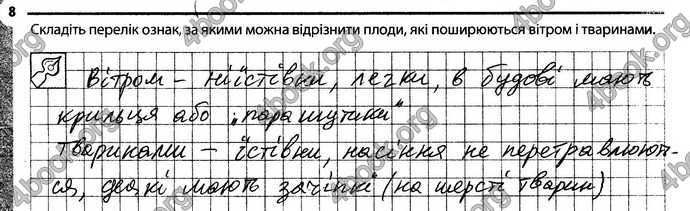 8
Складіть перелік ознак, за якими можна відрізнити плоди, які поширюються вітром і тваринами.
Вітром – ніїстівни, легки, в будові мають
крильця або „парашутики"
тваринами – їстівни, насіння не перетравлюют-
ся, деякі мають зачіпкі (на шерсті тварин)
4book.org